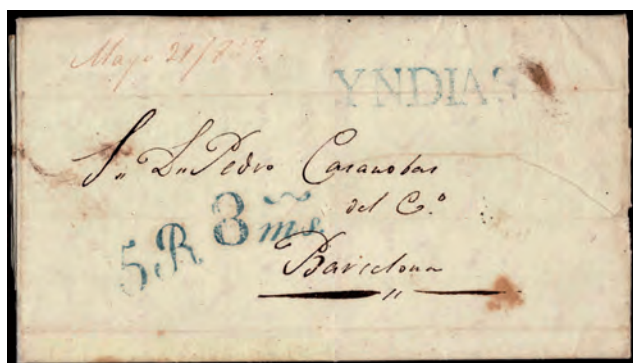 Mayo 21/
YNDIAS
Sr. Dn. Pedro Casanobas
del C.º
5R 8 ms
Barcelona